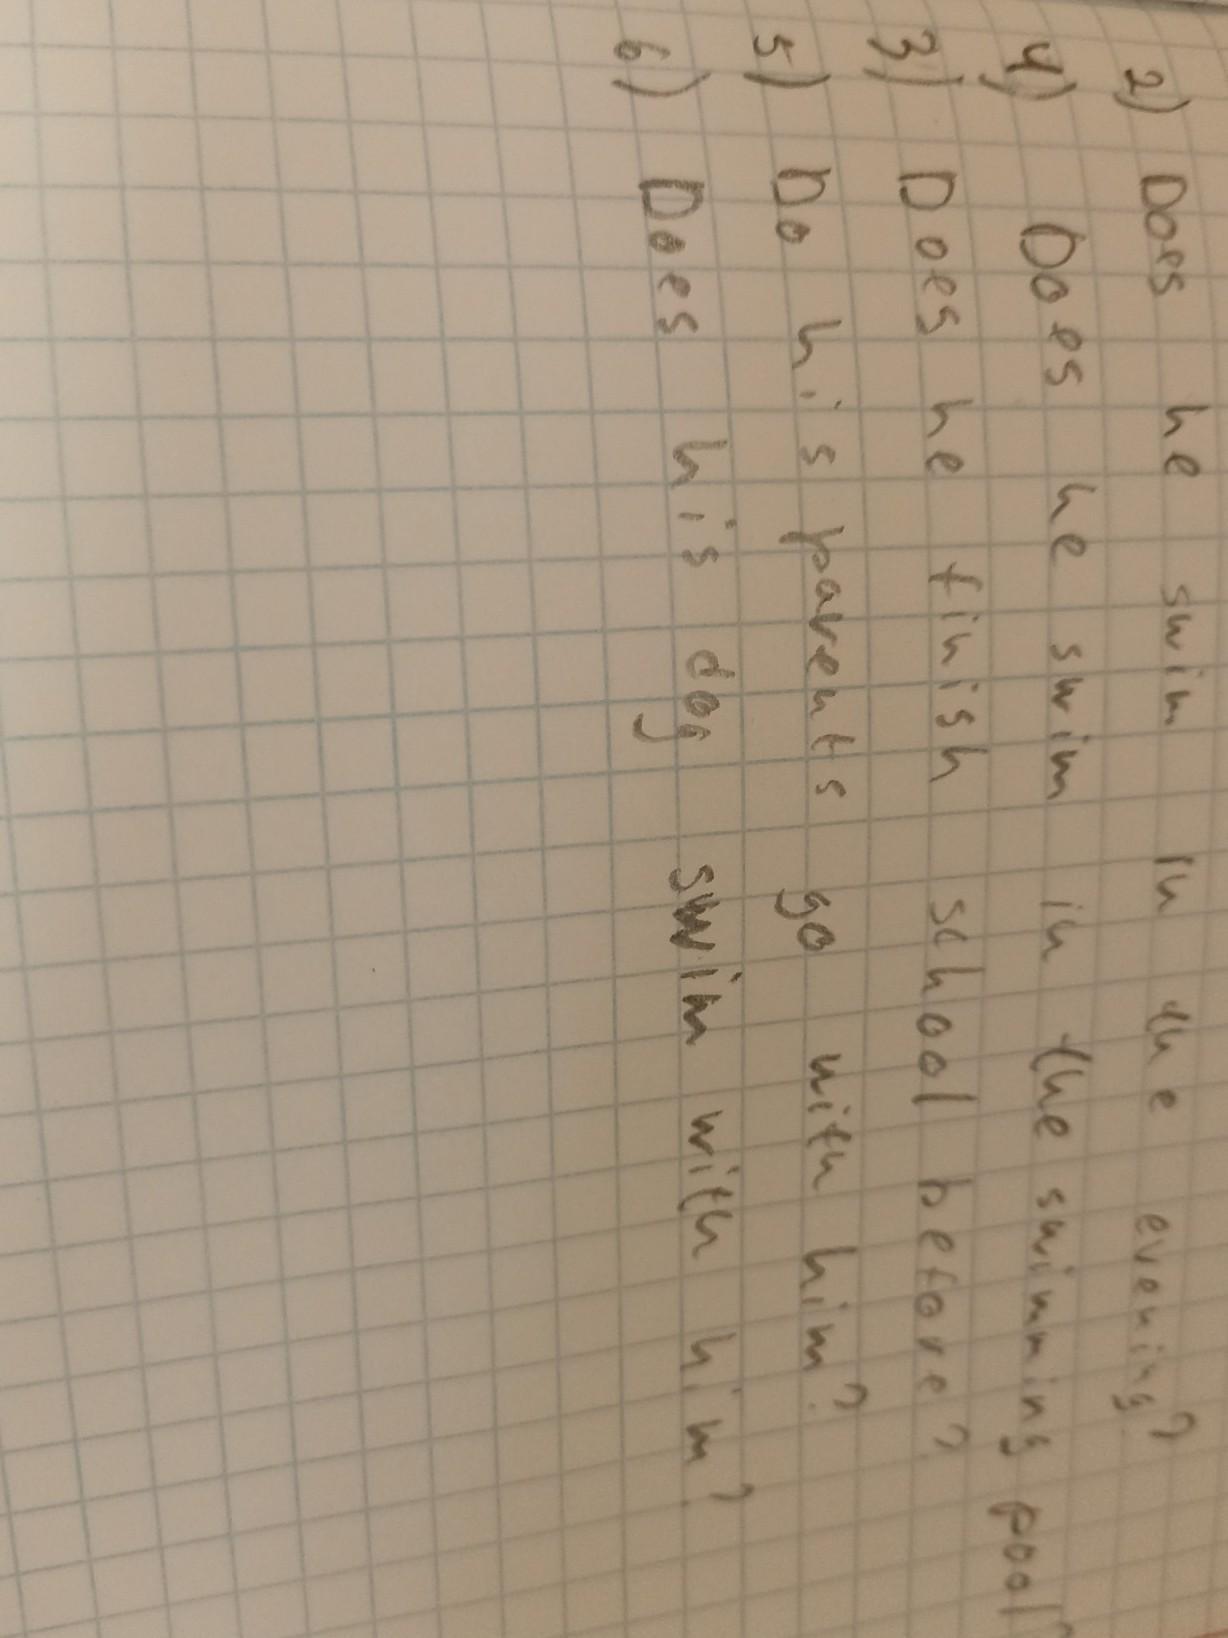 2) Does he swim in the evening?
4) Does he swim in the swimming pool?
3) Does he finish school before?
5) Do his parents go with him?
6) Does his dog swim with him?